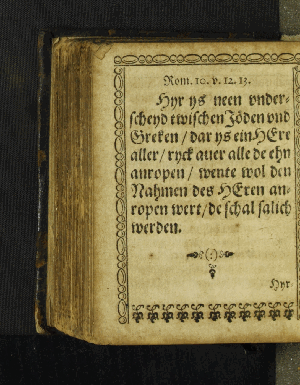 Rom. 10. v. 12. 13.
Hyr ys neen vnder-
scheyd twischen Jöden vnd
Greken / dar ys ein HEre
aller / ryck auer alle de ehn
anropen / wente wol den
Nahmen des HEren an-
ropen wert / de schal salich
werden.
Hyr